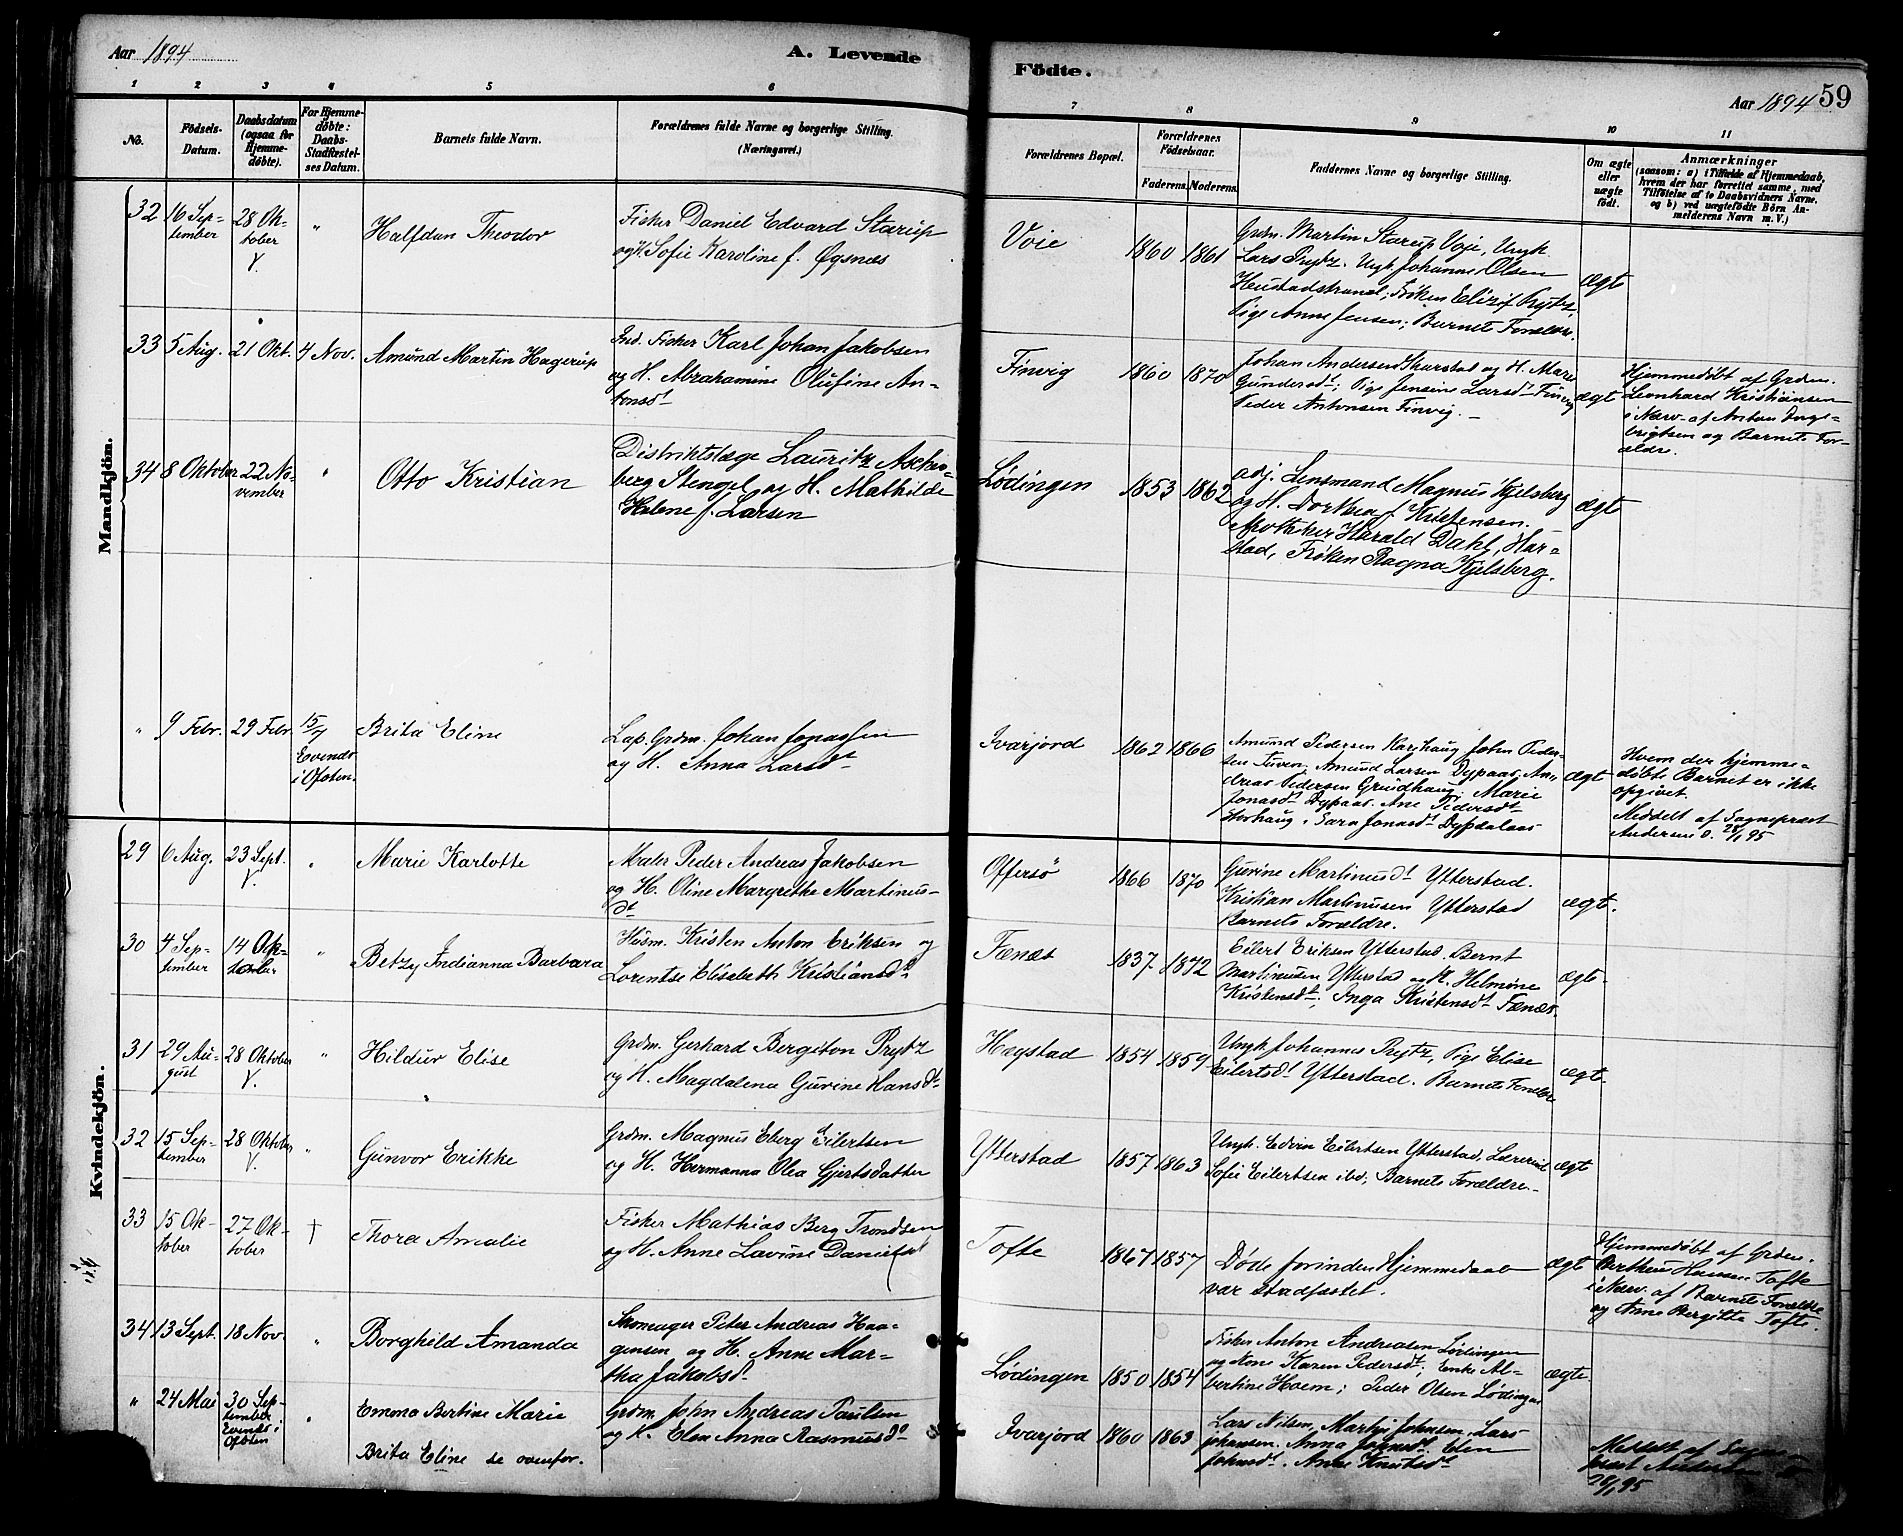 Aar 1894
A. Levende
Födte.
Aar 1894 59
1 2 3 4 5 6
7 8 9 10 11
No.
Födsels-Datum.
Daabsdatum (ogsaa for Hjemme-döbte).
For Hjemme-döbte: Daabs-Stadfæstel-ses Datum.
Barnets fulde Navn.
Forældrenes fulde Navne og borgerlige Stilling.
(Næringsvei.)
Forældrenes Bopæl.
Forældrenes Födselsaar.
Faderens. Moderens.
Faddernes Navne og borgerlige Stilling.
Om ægte eller uægte födt.
Anmærkninger
(saasom: a) i Tilfælde af Hjemmedaab,
hvem der har forrettet samme, med
Tilföielse af to Daabsvidners Navne,
og b) ved uægtefödte Börn An-
melderens Navn m. V.)
Mandkjön.
32 16 Sep-tember 28 Ok-tober V. " Halfdan Theodor
Fisker Daniel Edvard Starup
og H. Sofie Karoline f. Øgsnæs
Voie 1860 1861
Grdm. Martin Starup Voje, Ungk.
Lars Prytz. Ungk. Johannes Olsen
Heustadstrand; Frøken Elizif Prytz,
Pige Anne Jensen; Barnets Forældre.
ægt
33 5 Aug. 21 Okt. 4 Nov. Amund Martin Hagerup
Ind. Fisker Karl Johan Jakobsen
og H. Abrahamine Olufine An-
tonsdt
Finvig 1860 1870
Johan Andersen Skarstad og H. Mare
Gundersdt; Pige Jensine Larsdt Finvig
Peder Antonsen Finvig. -
ægt
Hjemmedøbt af Grdm.
Leonhard Kristiansen
i Nærv. af Anton Inge-
brigtsen og Barnets For-
ældre.
34 8 Oktober 22 No-vember " Otto Kristian
Distriktslæge Lauritz Ascha-
berg Stengel og H. Mathilde
Helene f. Larsen
Lødingen 1853 1862
adj. Lensmand Magnus Kjelsberg
og H. Dorthea f. Kristensen.
Apotheker Harald Dahl, Har-
stad, Frøken Ragna Kjelsberg.
ægt
" 9 Febr. 29 Febr. 15/7 Evenes i Ofoten. Brita Eline
Lap. Grdm. Johan Jonassen
og H. Anna Larsdt
Ivarjord 1862 1866
Amund Pedersen Karlhaug, John Peder-
sen Tuven, Amund Larsen Dypaas, An-
dreas Pedersen Grundhaug. Marie
Jonasdt Dypaas. Ane Pedersdt
Storhaug, Sara Jonasdt Dypdalaas
ægt
Hvem der hjemme-
døbte Barnet er ikke
opgivet.
Meddelt af Sognepræst
Andersen d. 28/1 95
Kvindekjön.
29 6 Aug. 23 Sept. V. " Marie Karlotte
Maler Peder Andreas Jakobsen
og H. Oline Margrethe Martinus-
dt
Offersø 1866 1870
Gurine Martinusdt Ytterstad.
Kristian Martinusen Ytterstad
Barnets Forældre.
ægt.
30 4 Sep-tember 14 Ok-tober " Betzy Indianna Barbara
Husm. Kristen Anton Eriksen og
Lorentse Elisabeth Kristiansdt
Fænæs 1837. 1872
Eilert Eriksen Ytterstad. Bernt
Martinusen Ytterstad og H. Helmine
Kristensdt; Inga Kristensdt Fænæs.
ægte.
31 29 Au-gust 28 Oktober V. " Hildur Elise
Grdm. Gerhard Bergiton Prytz
og H. Magdalena Gurine Hansdt
Hægstad 1854 1859
Ungk. Johannes Prytz, Pige Elise
Eilertsdt Ytterstad. Barnets Forældre
ægt.
32 15 Sep-tember 28 Oktober V. " Gunvor Erikke
Grdm. Magnus Eberg Eilertsen
og H. Hermanna Olea Gjertsdatter
Ytterstad 1857 1863
Ungk. Edvin Eilertsen Ytterstad, Lærerinde
Sofie Eilertsen ibd; Barnets Forældre.
ægt
33 15 Ok-tober 27 Ok-tober † Thora Amalie
Fisker Mathias Berg Trondsen
og H. Anne Lavine Danielsdt
Tofte 1867 1857
Døde forinden Hjemmedaab
var stadfæstet.
ægt
Hjemmedøbt af Grdm.
Bertheus Hansen Tofte
i Nærv. af Barnets Forældre
og Anne Bergitta Tofte.
34 13 Sept. 18 Nov. " Borghild Amanda
Skomager Peter Andreas Haa-
gensen og H. Anne Mar-
tha Jakobsdt
Lødingen 1850 1854
Fisker Anton Andreasen Lødingen
og Kone Karen Pedersdt; Enke Al-
bertine Hoem; Peder Olsen Lødingen
ægte
" 24 Mai 30 Sep-tember Evenes i Ofoten " Emma Bertine Marie
Grdm. John Andreas Paulsen
og H. Elen Anna Rasmusdt
Ivarjord 1860 1863
Lars Nilsen, Marthje Johnsen, Lars
Johansen. Anna Jonasdt. Elen
Johnsdt. Anne Knutsdt
Meddelt af Sogne-
præst Andersen
28/1 95
Brita Eline se ovenfor.